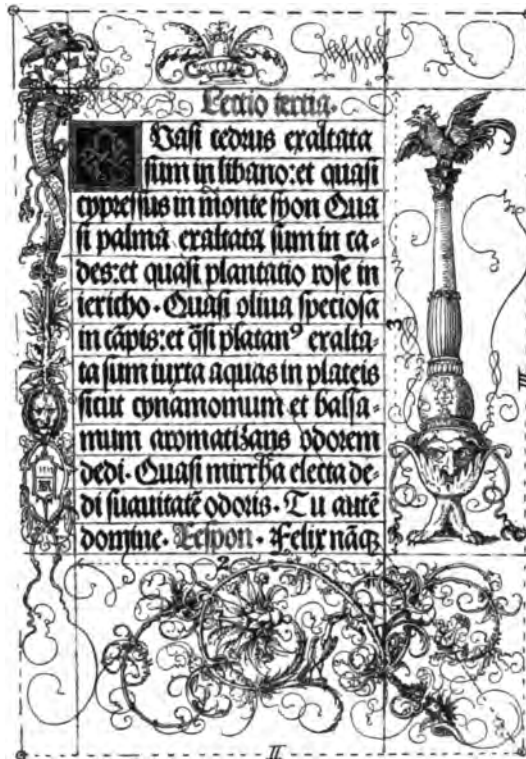 Lectio tertia.
Quasi cedrus exaltata
sum in libano: et quasi
cypressus in monte syon Qua
si palma exaltata sum in ca-
des: et quasi plantatio rose in
iericho. Quasi oliua speciosa
in cāpis: et q̄si platanꝰ exalta-
ta sum iuxta aquas in plateis
sicut cynamomum et balsa-
mum aromatizans odorem
dedi. Quasi mirrha electa de-
di suauitatē odoris. Tu autē
domine. Respon. Felix nāqꝫ
3
III
1
2
II